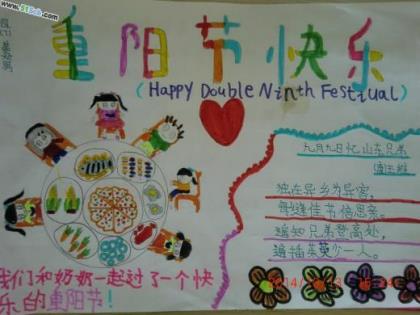 www.51Sub.com
重阳节快乐
(Happy Double Ninth Festiual)
九月九日忆山东兄弟
独在异乡为异客,
每逢佳节倍思亲。
遥知兄弟登高处,
遍插茱萸少一人。
我们和奶奶一起过了一个快
乐的重阳节!